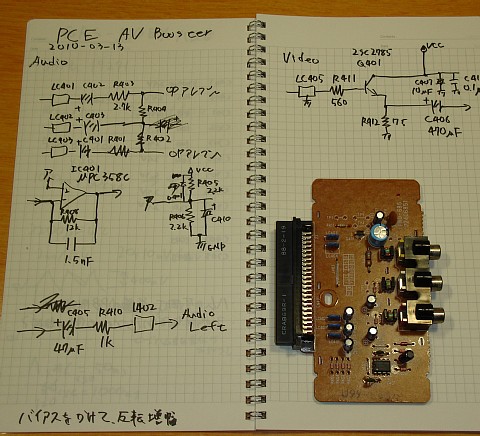 PCE AV Booster
2010-03-13
Audio
LC401 C402 R403
2.7k
OPアンプへ
R404
LC402 C403
R402
LC403 C401 R401
OPアンプへ
IC401
μPC358C
R408
12k
1.5nF
VCC
R405
2.2k
R406
2.2k
C410
GND
C405 R410 L402
47μF 1k
Audio
Left
バイアスをかけて、反転増幅
Video
2SC2785
Q401
VCC
LC405 R411
560
C407
10μF
C41
0.1μ
R412 75
C406
470μF